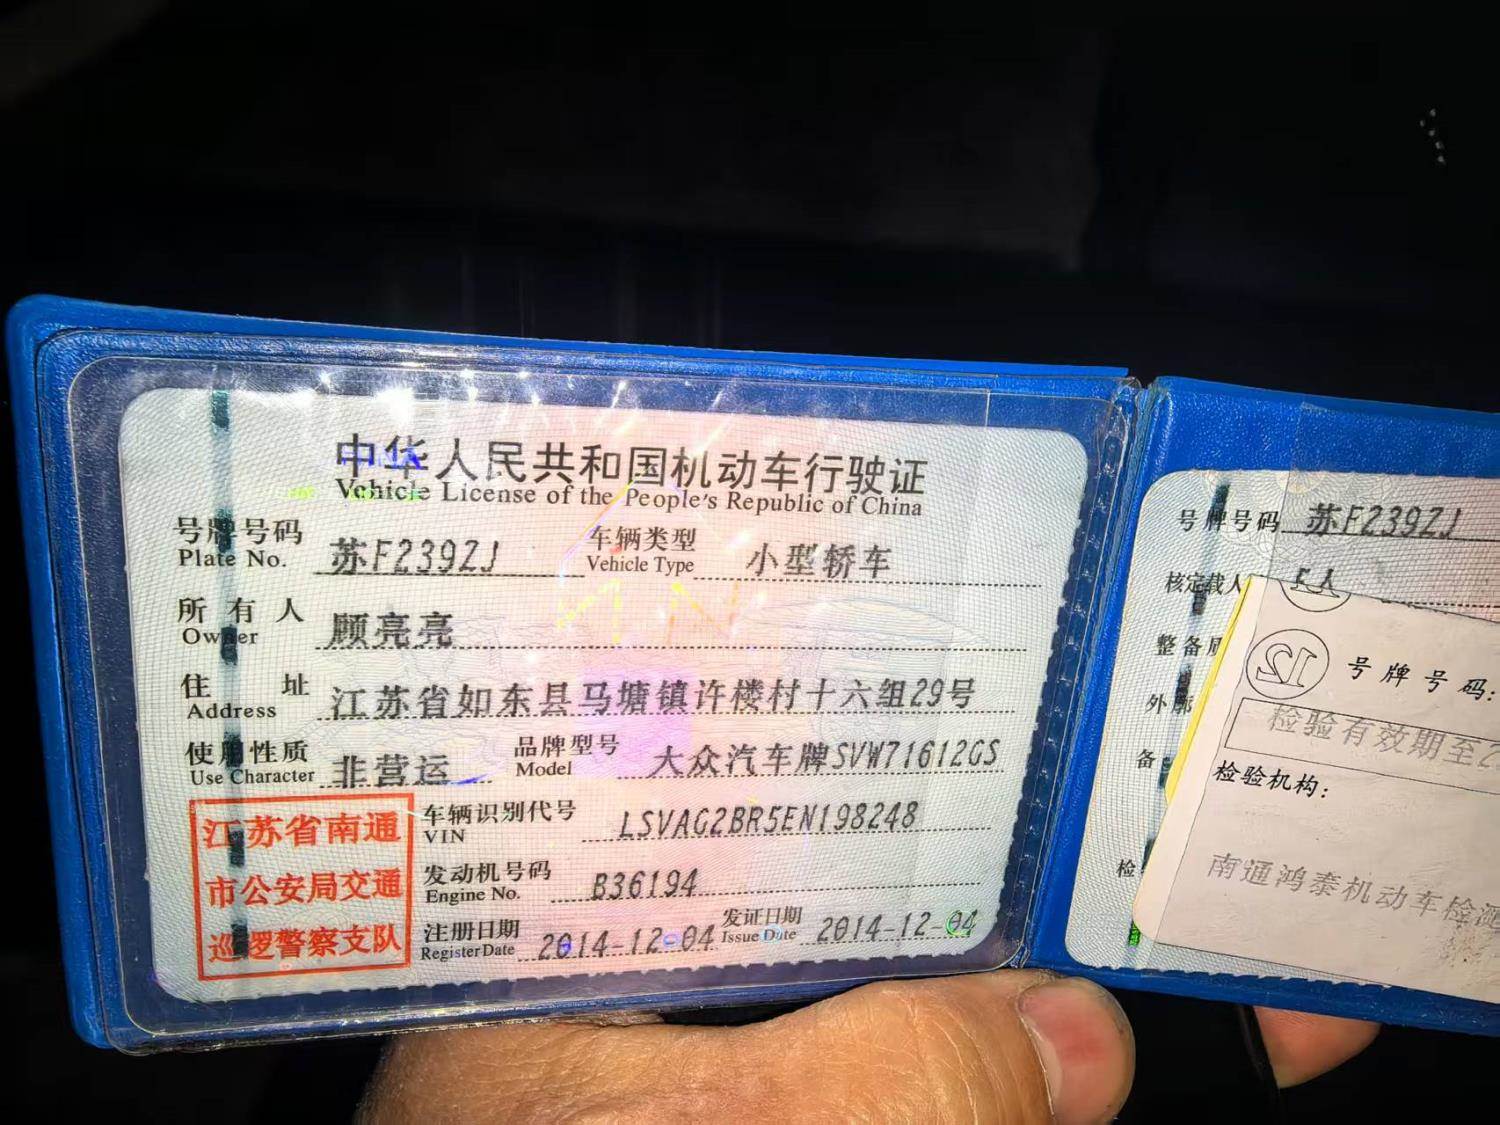 中华人民共和国机动车行驶证
Vehicle License of the People's Republic of China
号牌号码 苏F239ZJ 车辆类型 小型轿车
Plate No. Vehicle Type
所有人 顾亮亮
Owner
住址 江苏省如东县马塘镇许楼村十六组29号
Address
使用性质 非营运 品牌型号 大众汽车牌SVW71612GS
Use Character Model
江苏省南通
市公安局交通
巡逻警察支队
车辆识别代号 LSVAG2BR5EN198248
VIN
发动机号码 B36194
Engine No.
注册日期 2014-12-04 发证日期 2014-12-04
Register Date Issue Date
号牌号码 苏F239ZJ
核定载人 5人
整备质
外廓
备
检
12 号牌号码:
检验有效期至2
检验机构:
南通鸿泰机动车检测